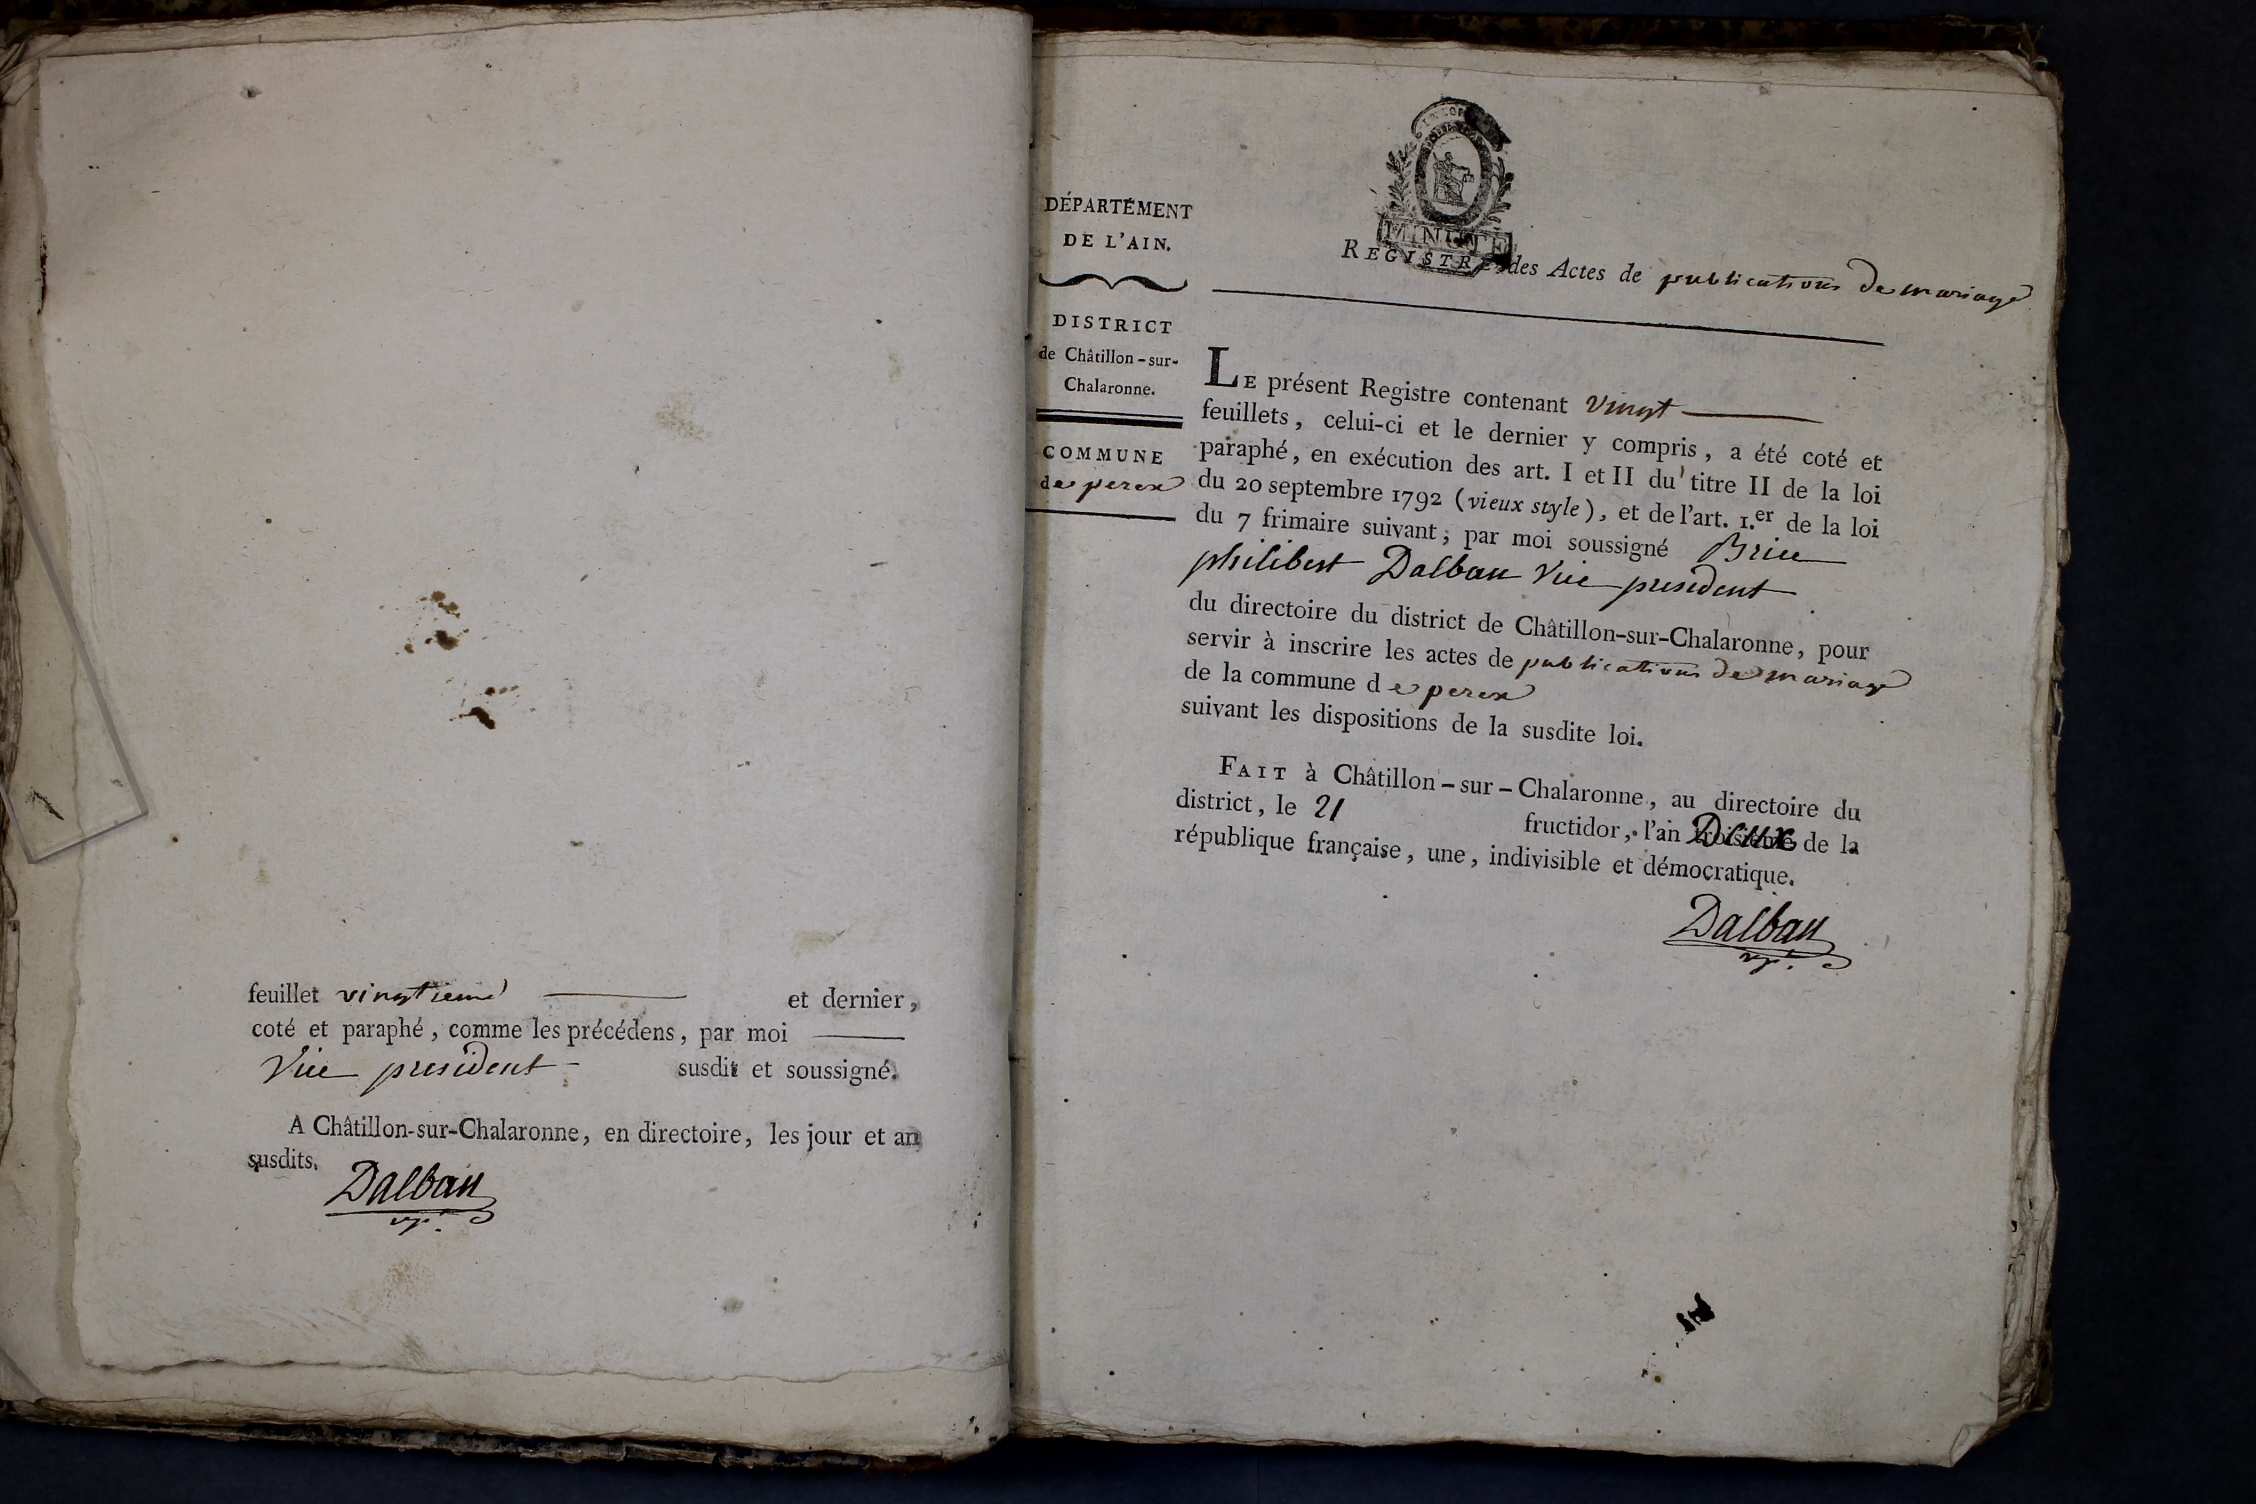 feuillet vingtieme et dernier,
coté et paraphé, comme les précédens, par moi
Vice president susdit et soussigné.
A Châtillon-sur-Chalaronne, en directoire, les jour et an
susdits.
Dalban
vp.
DÉPARTEMENT
DE L'AIN.
DISTRICT
de Châtillon-sur-
Chalaronne.
COMMUNE
de perex
MINUTE
REGISTRE des Actes de publications de mariage
LE présent Registre contenant vingt
feuillets, celui-ci et le dernier y compris, a été coté et
paraphé, en exécution des art. I et II du titre II de la loi
du 20 septembre 1792 (vieux style), et de l'art. 1.er de la loi
du 7 frimaire suivant, par moi soussigné Brice
philibert Dalban Vice president
du directoire du district de Châtillon-sur-Chalaronne, pour
servir à inscrire les actes de publications de mariage
de la commune de perex
suivant les dispositions de la susdite loi.
FAIT à Châtillon-sur-Chalaronne, au directoire du
district, le 21 fructidor, l'an Deux de la
république française, une, indivisible et démocratique.
Dalban
vp.